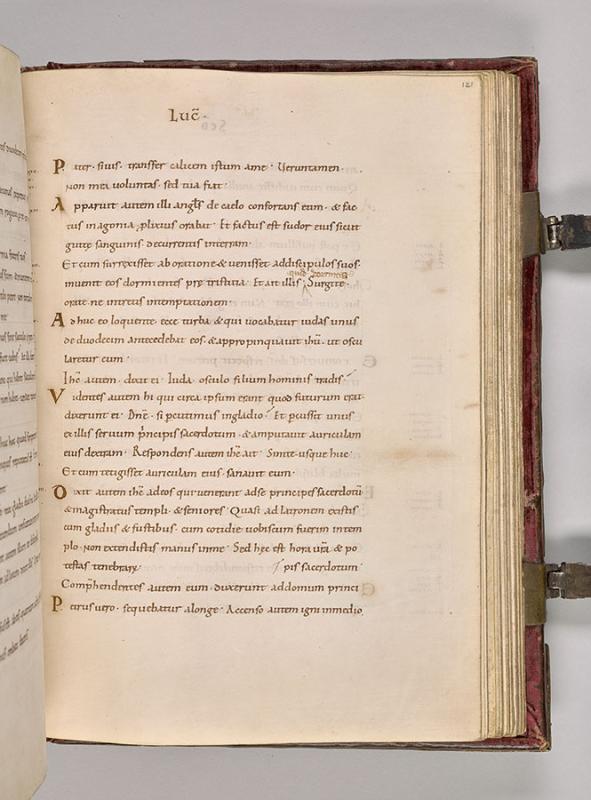 121
Luc̄.
Pater. si uis. transfer calicem istum a me. Veruntamen.
non mea uoluntas. sed tua fiat.
Apparuit autem illi angl̄s de caelo confortans eum. & fac
tus in agonia. plixius orabat. Et factus est sudor eius sicut
guttę sanguinis decurrentis in terram.
Et cum surrexisset ab oratione & uenisset ad discipulos suos.
inuenit eos dormientes prę tristitia. Et ait illis. Surgite.
quid dormitis
orate ne intretis in temptationem.
Adhuc eo loquente. ecce turba & qui uocabatur iudas unus
de duodecim antecedebat eos. & appropinquauit ih̄u. ut oscu
laretur eum.
Ih̄c autem. dixit ei. Iuda. osculo filium hominis tradis
Videntes autem hi qui circa ipsum erant quod futurum erat.
dixerunt ei. Dn̄e. si pcutimus in gladio. Et pcussit unus
ex illis seruum pncipis sacerdotum. & amputauit auriculam
eius dextram. Respondens autem ih̄c ait. Sinite usque huc.
Et cum tetigisset auriculam eius. sanauit eum.
Dixit autem ih̄c ad eos qui uenerant ad se principes sacerdotū
& magistratus templi. & seniores. Quasi ad latronem existis
cum gladiis & fustibus. cum cotidie uobiscum fuerim in tem
plo. non extendistis manus in me. Sed hęc est hora ur̄a. & po
testas tenebrarꝝ. pis sacerdotum.
Comphendentes autem eum. duxerunt ad domum princi
Petrus uero. sequebatur a longe. Accenso autem igni in medio